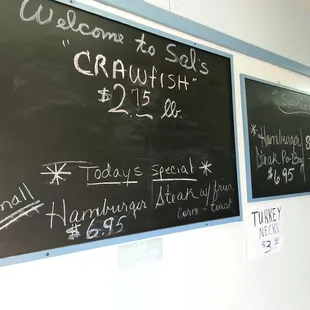 Welcome to Sal's
"CRAWFISH"
$2.75 lb.
* Todays Special *
mall
Hamburger
$6.95
Steak w/ fries,
corn - toast
Hamburger
Steak Po-Boy
$6.95
TURKEY
NECKS
$3